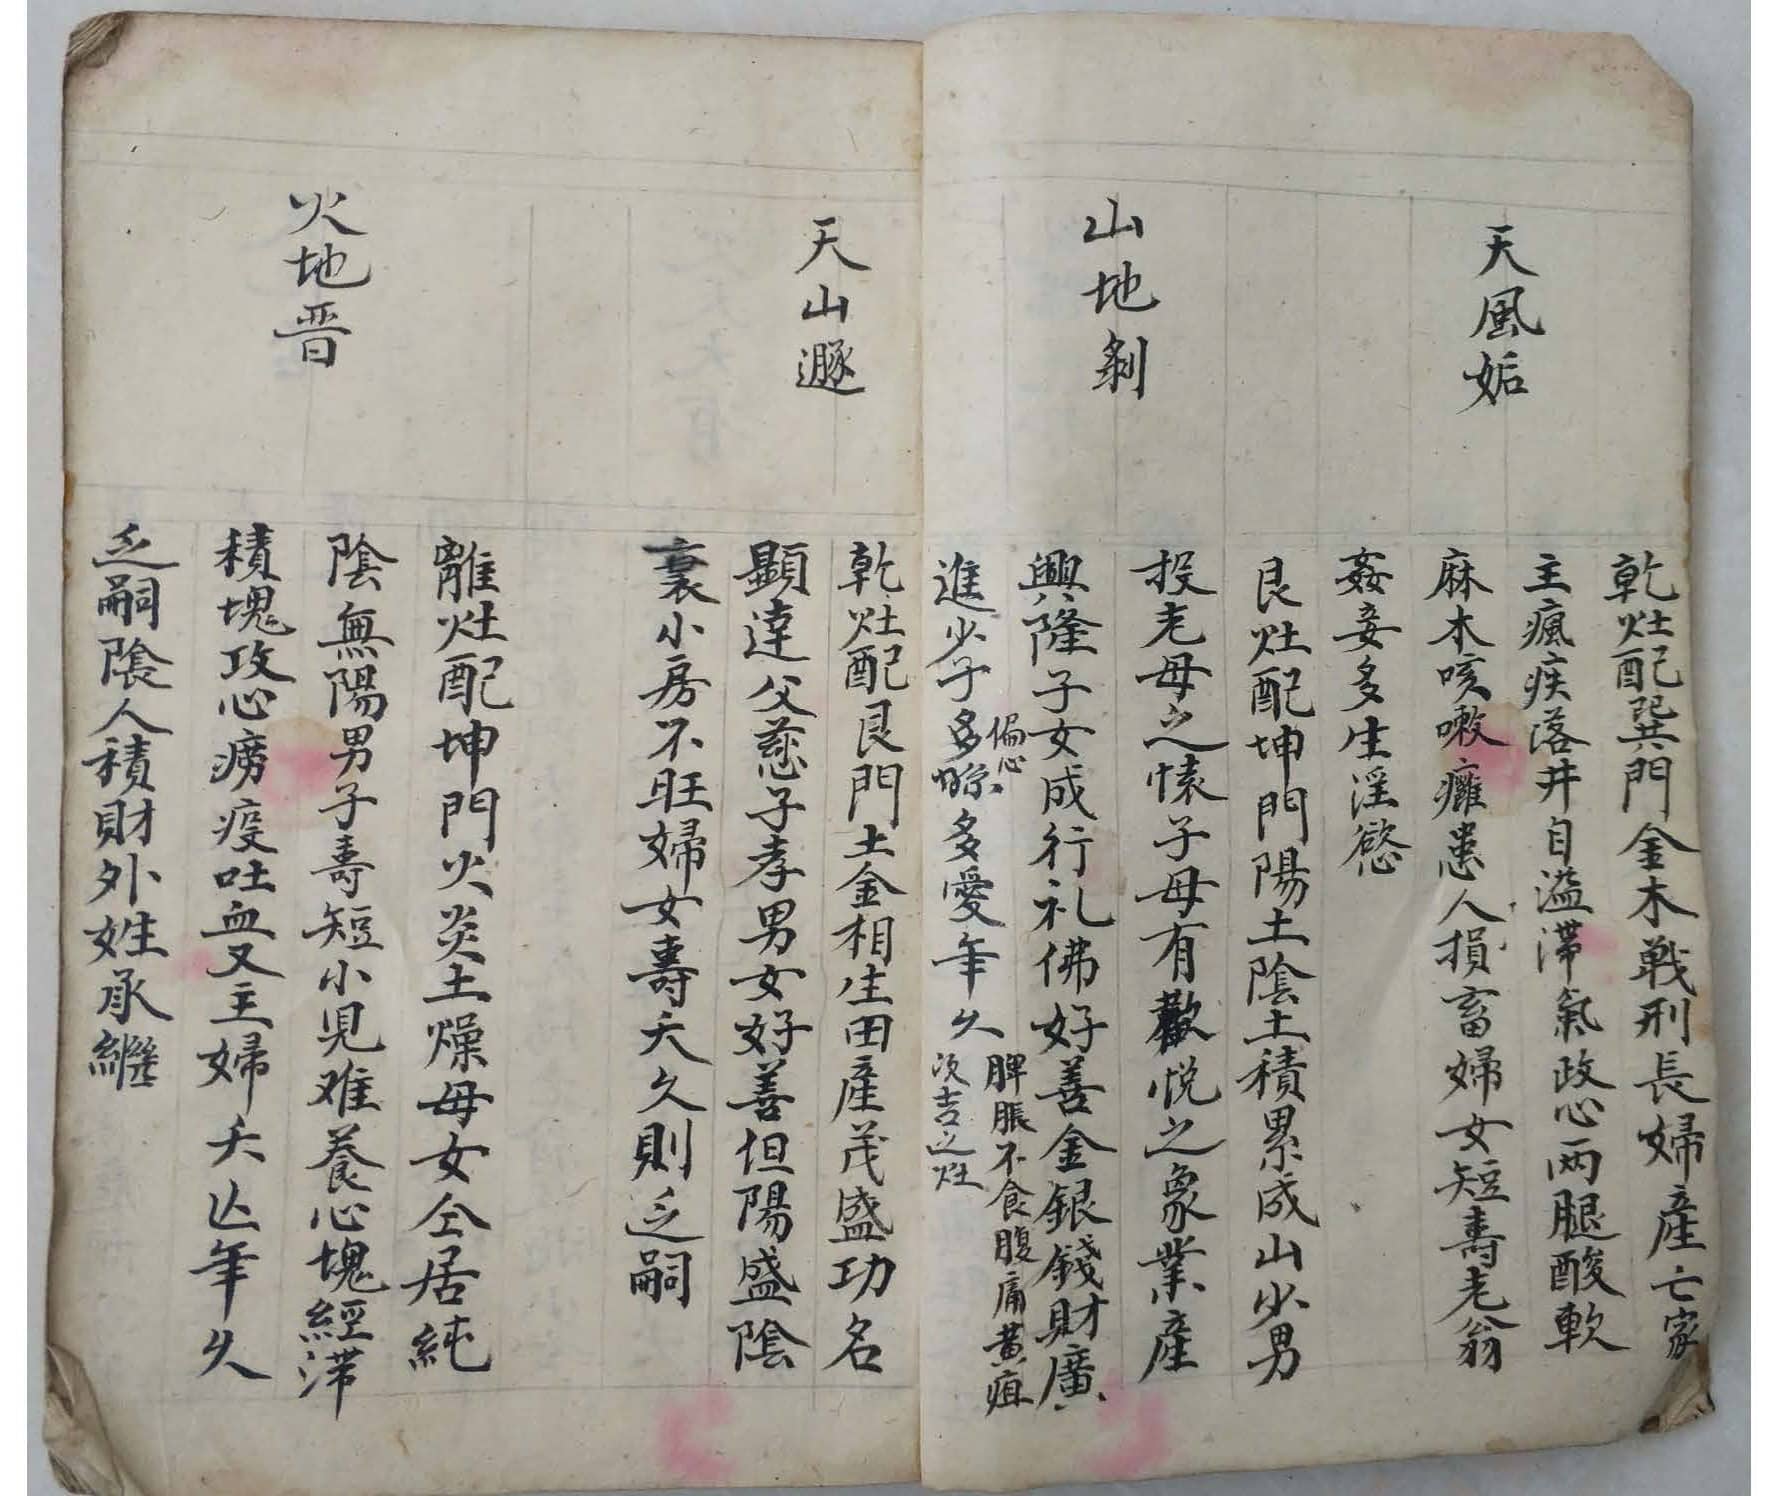 天風姤
乾灶配巽門金木戰刑長婦產亡家
主瘋疾落井自溢滯氣攻心两腿酸軟
麻木咳嗽癱患人損畜婦女短壽老翁
姦妾多生淫慾
山地剝
艮灶配坤門陽土陰土積累成山少男
投老母之懐子母有歡悦之象業產
興隆子女成行礼佛好善金銀錢財廣
進少子多 多愛年久
偏心
脾脹不食腹痛黃疸
次吉之灶
天山遯
乾灶配艮門土金相生田產茂盛功名
顯達父慈子孝男女好善但陽盛陰
衰小房不旺婦女壽夭久則乏嗣
火地晋
離灶配坤門火炎土燥母女仝居純
陰無陽男子壽短小児难養心塊經滯
積塊攻心癆疫吐血又主婦夭亾年久
乏嗣陰人積財外姓承繼